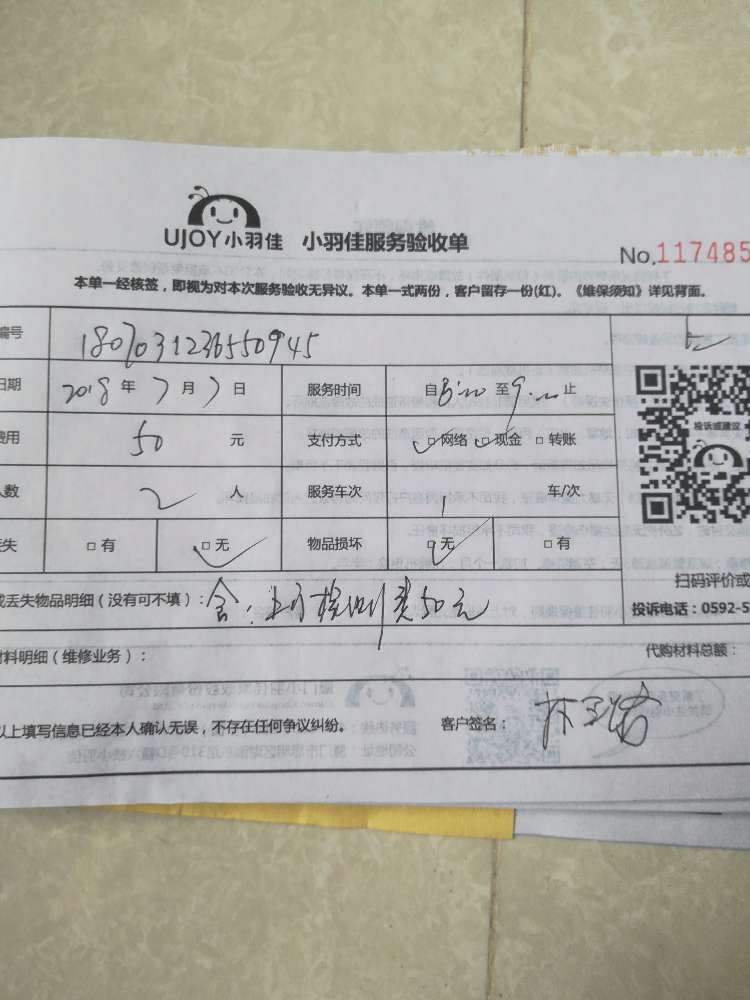 UJOY小羽佳 小羽佳服务验收单
No.117485
本单一经核签，即视为对本次服务验收无异议。本单一式两份，客户留存一份(红)。《维保须知》详见背面。
编号 1807031236550945
日期 2018 年 7 月 7 日 服务时间 自8:00 至9:00 止
费用 50 元 支付方式 □网络 □现金 □转账
人数 2 人 服务车次 1 车/次
投诉或建议
失 □有 □无 物品损坏 □无 □有
扫码评价或
或丢失物品明细（没有可不填）： 含：上门检测费50元
投诉电话：0592-5
材料明细（维修业务）： 代购材料总额：
以上填写信息已经本人确认无误，不存在任何争议纠纷。 客户签名：